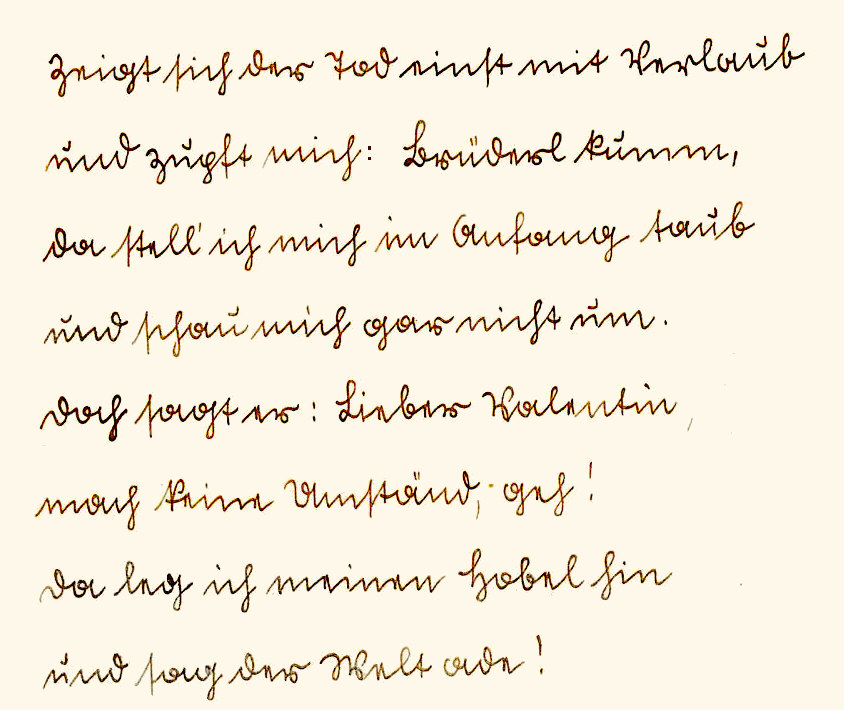 Zeigt sich der Tod einst mit Verlaub
und zupft mich: Brüderl kumm,
da stell' ich mich im Anfang taub
und schau mich gar nicht um.
Doch sagt er: Lieber Valentin,
mach keine Umständ, geh!
Da leg ich meinen Hobel hin
und sag der Welt ade!